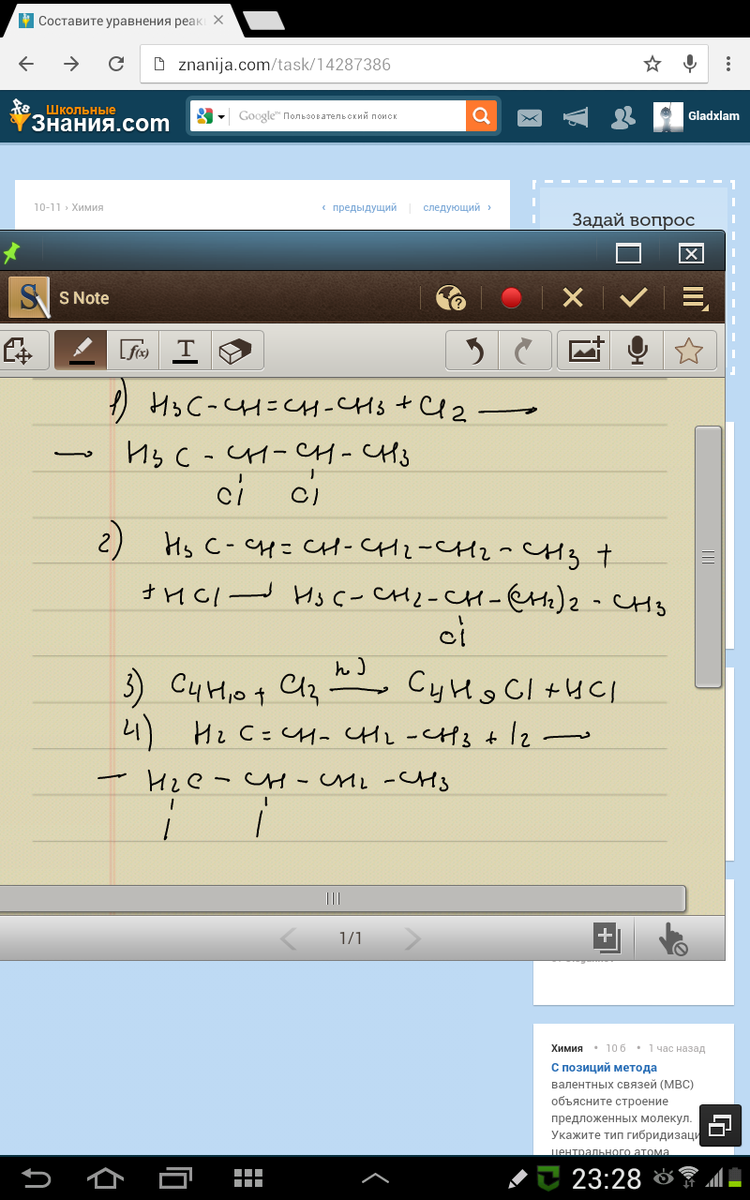 Составите уравнения реак
znanija.com/task/14287386
Школьные
Знания.com
Google™ Пользовательский поиск
Gladxlam
10-11 › Химия
‹ предыдущий | следующий ›
Задай вопрос
S Note
f(x)
T
1) H3C-CH=CH-CH3 + Cl2 →
→ H3C - CH - CH - CH3
Cl Cl
2) H3C-CH=CH-CH2-CH2-CH3 +
+ HCl → H3C-CH2-CH-(CH2)2-CH3
Cl
3) C4H10 + Cl2 hν → C4H9Cl + HCl
4) H2C=CH-CH2-CH3 + I2 →
→ H2C - CH - CH2 - CH3
I I
1/1
Химия • 10 б • 1 час назад
С позиций метода
валентных связей (МВС)
объясните строение
предложенных молекул.
Укажите тип гибридизаци
центрального атома
23:28